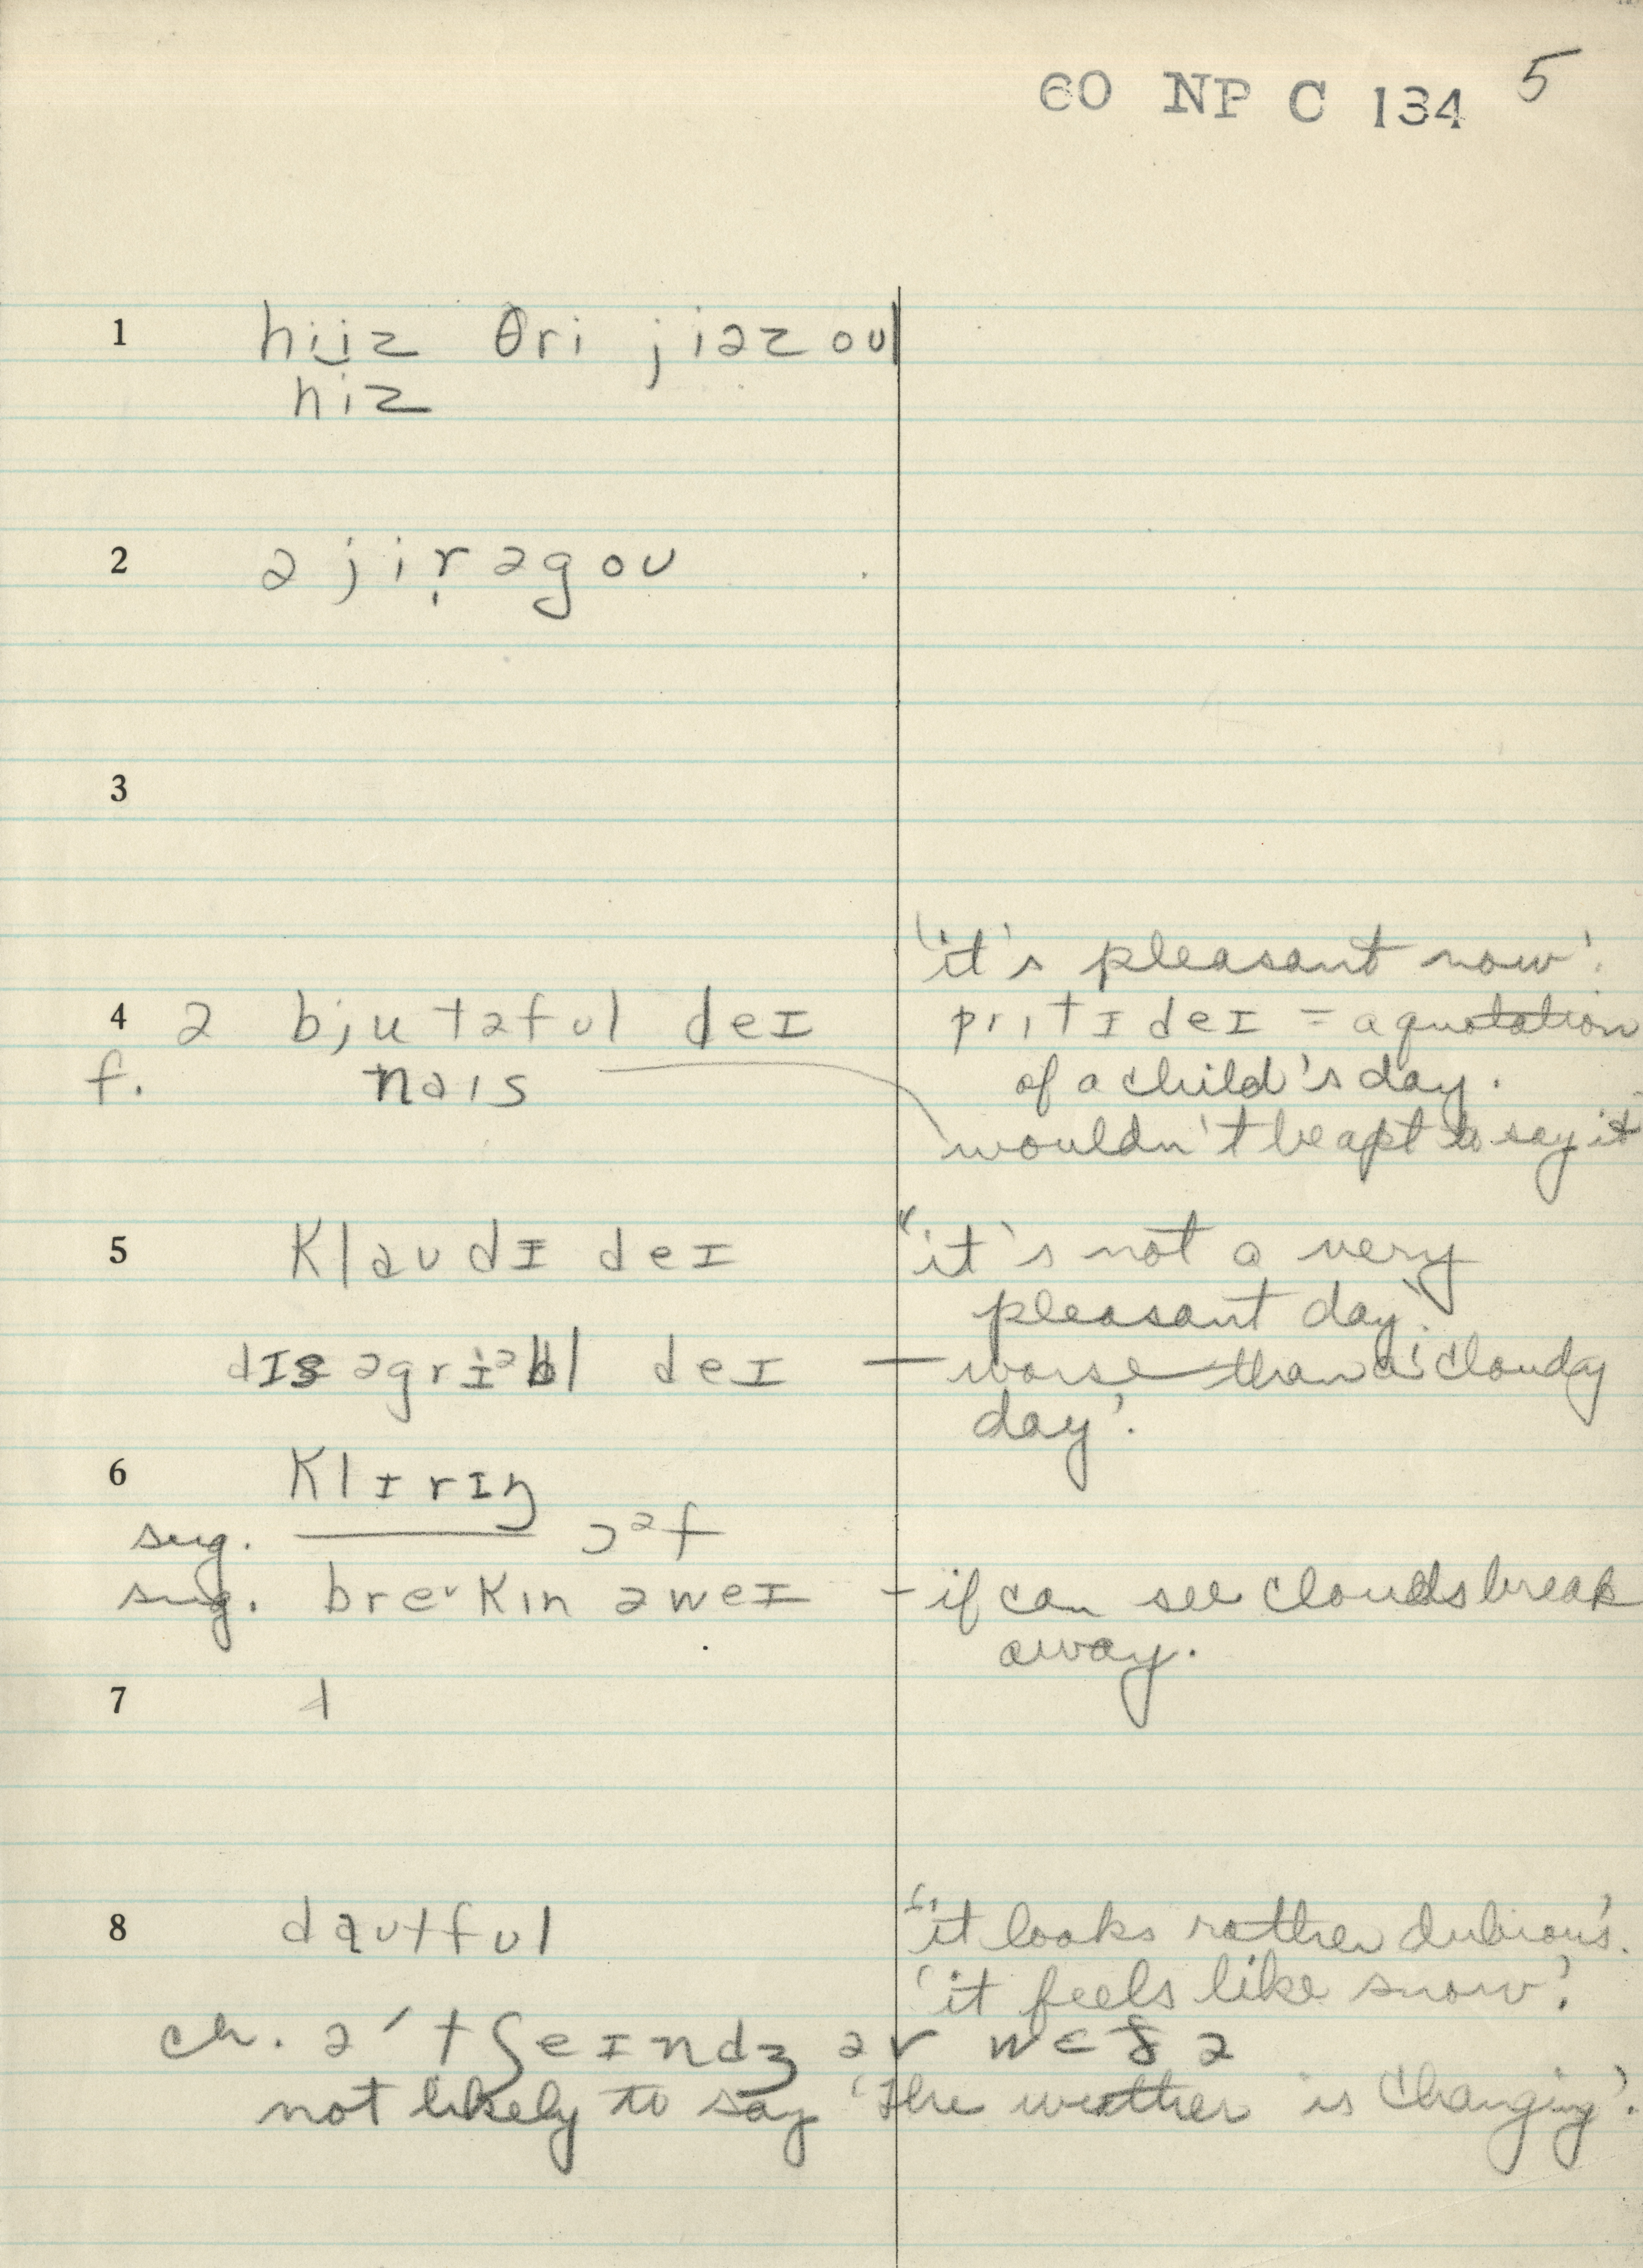 60 NP C 134 5
1 hijz θri jiəz oul
hiz
2 ə jir̩ əgou
3
'it's pleasant now'.
4 ə bjutəful deɪ prɪtɪ deɪ = a quotation
f. naɪs of a child's day.
wouldn't be apt to say it
5 klaudɪ deɪ "it's not a very
pleasant day'.
dɪsəgriəbl deɪ — worse than a 'cloudy
day'.
6 klɪrɪŋ
sug. ——— ɔᵊf
sug. breɪkɪn əweɪ – if can see clouds break
away.
7
8 dautful "it looks rather dubious'.
'it feels like snow'.
ch. ə' tʃeɪndʒ əv wɛðə
not likely to say 'the weather is changing'.